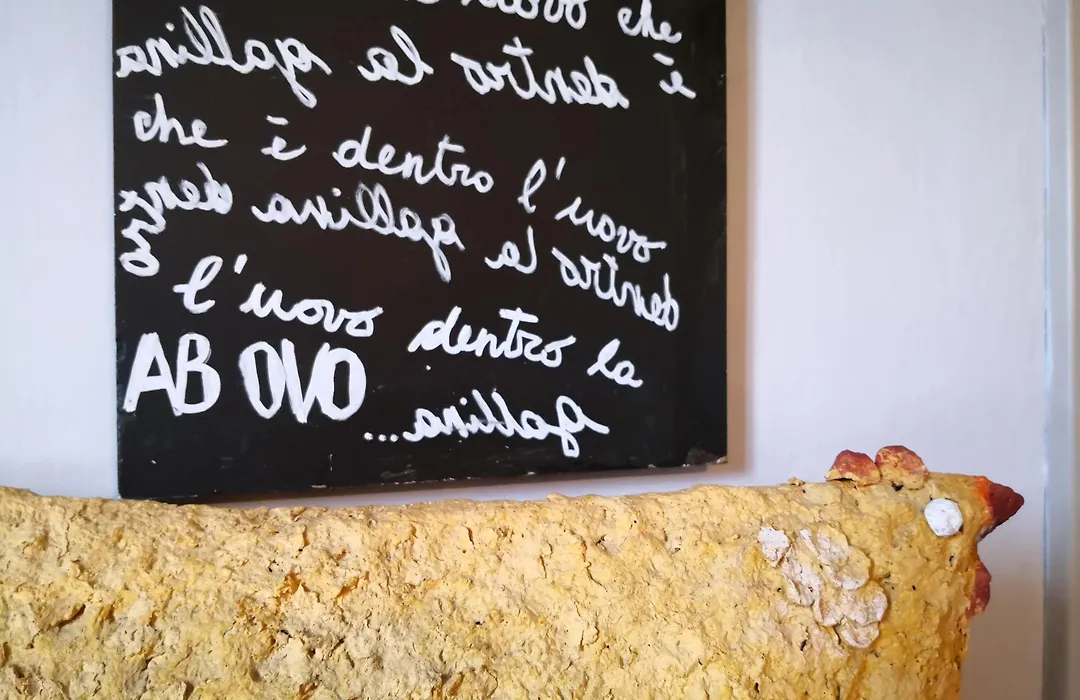 uovo che
è dentro la gallina
che è dentro l'uovo
dentro la gallina dentro
l'uovo dentro la
gallina...
AB OVO